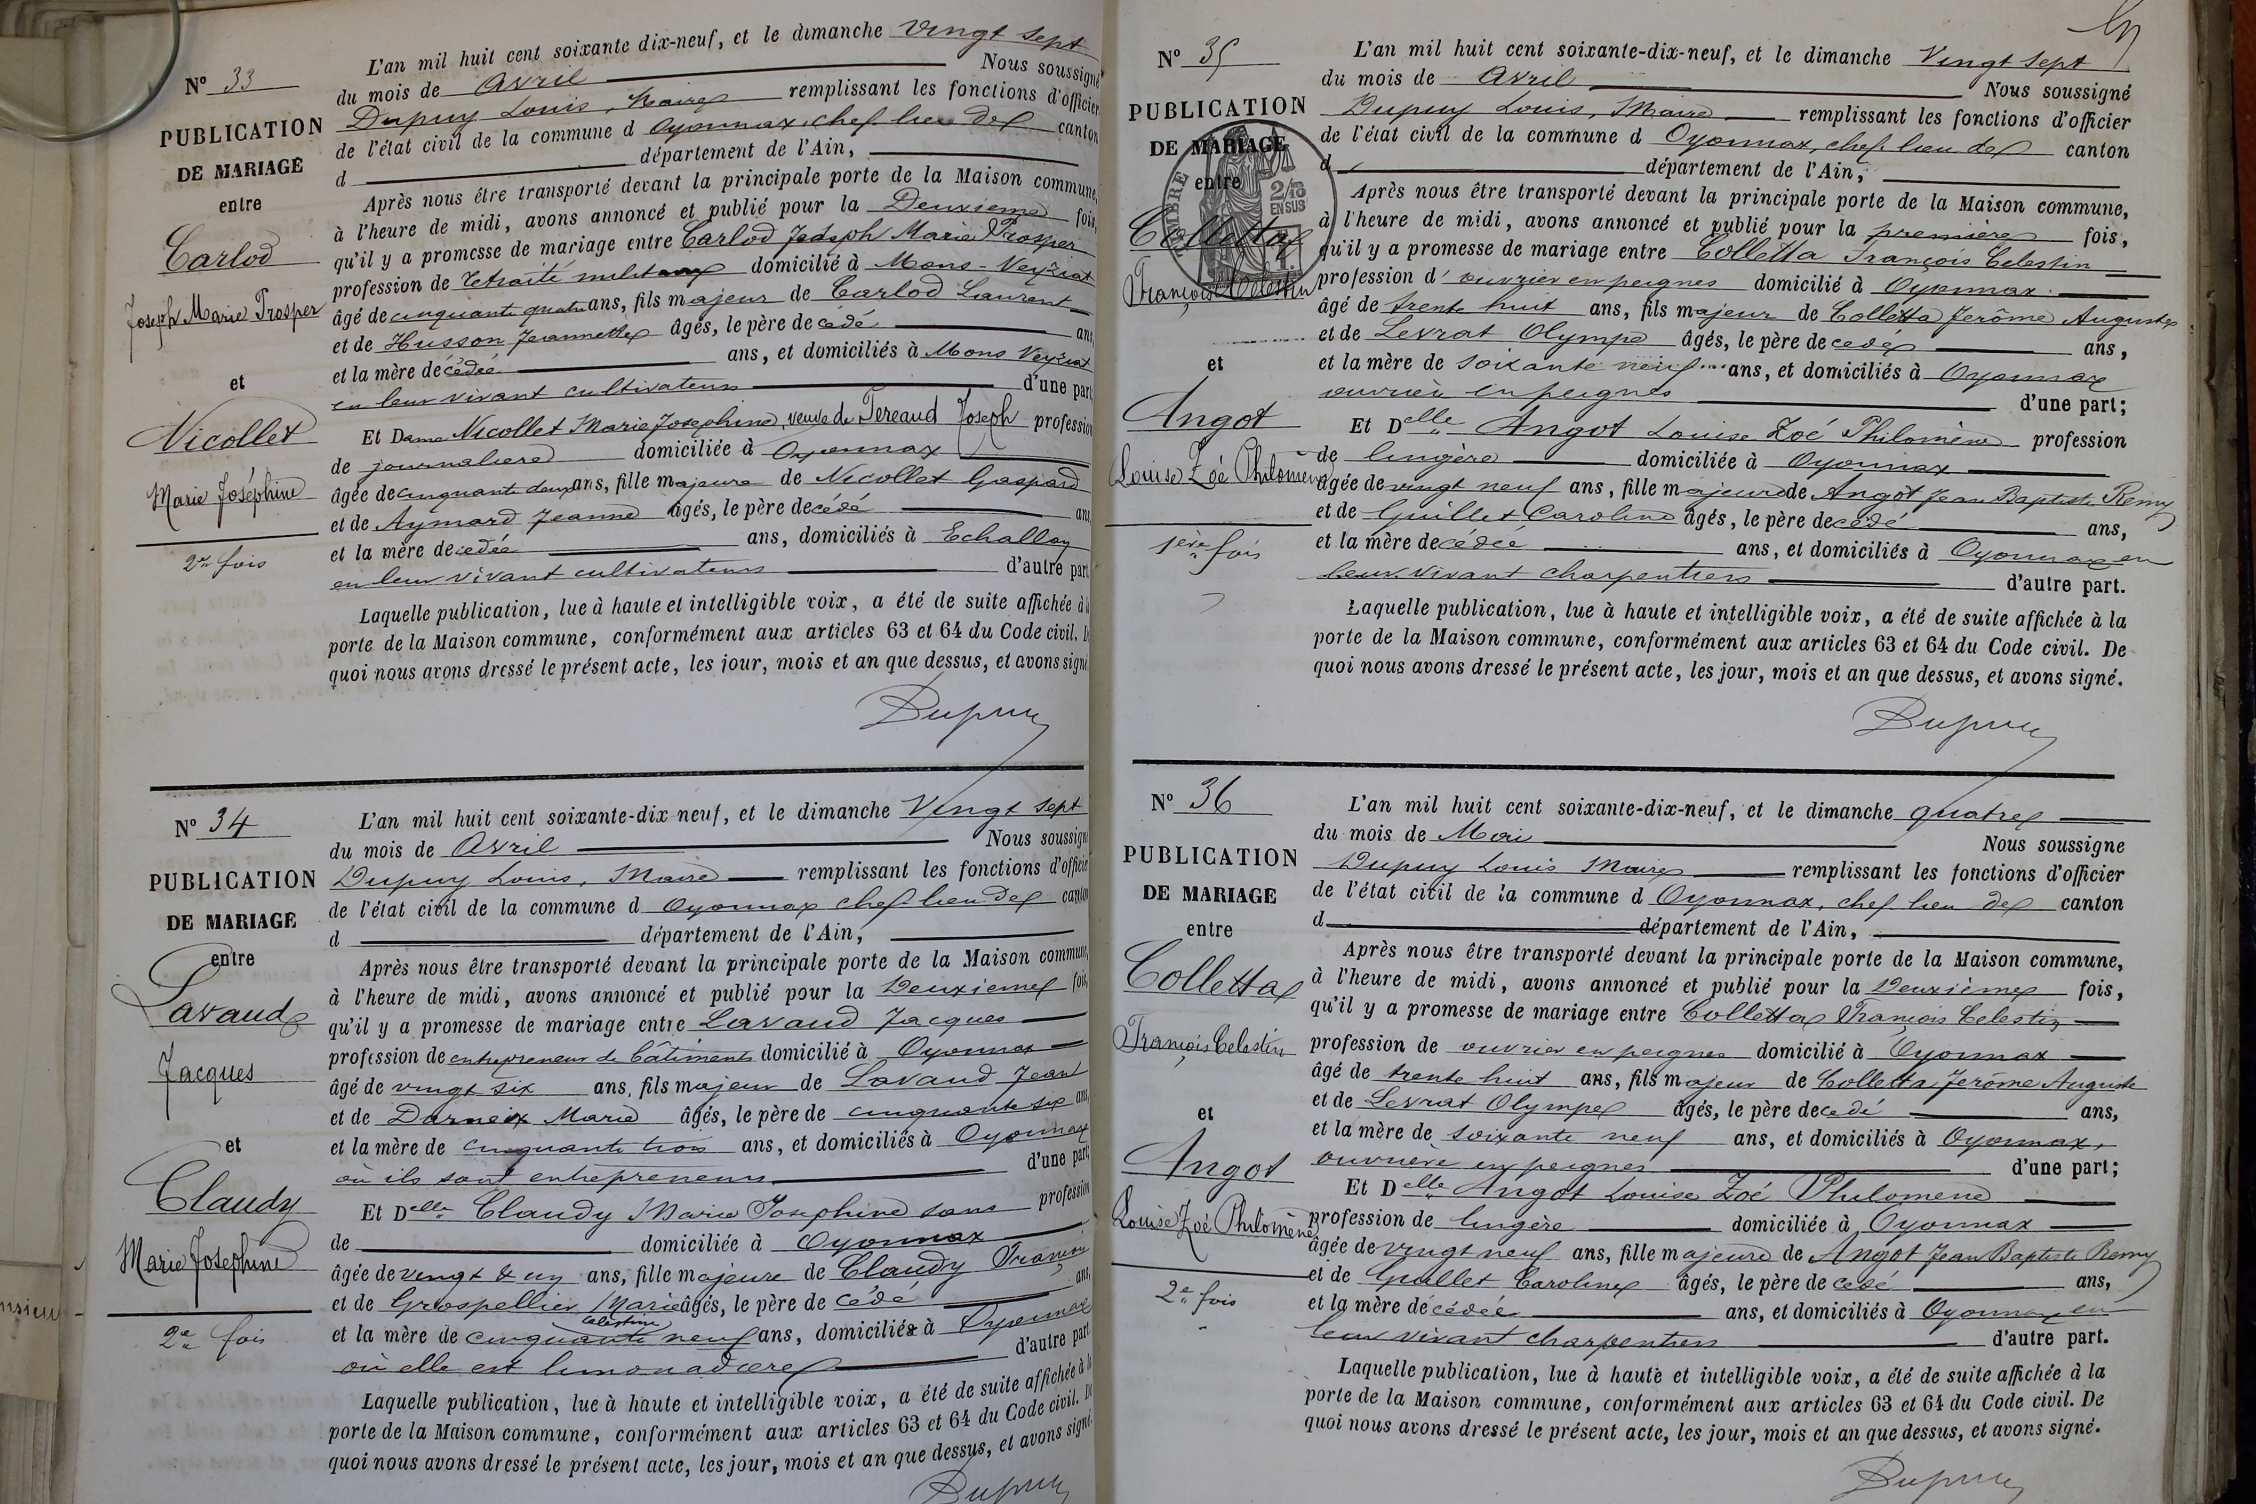 N° 33
PUBLICATION
DE MARIAGE
entre
Carlod
Joseph Marie Prosper
et
Nicollet
Marie Joséphine
2e fois
L'an mil huit cent soixante dix-neuf, et le dimanche vingt sept
du mois de Avril Nous soussigné
Dupuy Louis, Maire remplissant les fonctions d'officier
de l'état civil de la commune d Oyonnax, chef lieu de canton
d département de l'Ain,
Après nous être transporté devant la principale porte de la Maison commune,
à l'heure de midi, avons annoncé et publié pour la Deuxième fois,
qu'il y a promesse de mariage entre Carlod Joseph Marie Prosper
profession de retraité militaire domicilié à Mons-Veyziat
âgé de cinquante quatre ans, fils majeur de Carlod Laurent
et de Husson Jeannette âgés, le père decédé ans,
et la mère décédée ans, et domiciliés à Mons Veyziat
en leur vivant cultivateurs d'une part
Et Dame Nicollet Marie Josephine, veuve de Tereaud Joseph profession
de journalière domiciliée à Oyonnax
âgée de cinquante deux ans, fille majeure de Nicollet Gaspard
et de Aymard Jeanne âgés, le père decédé ans,
et la mère decedée ans, domiciliés à Echallon
en leur vivant cultivateurs d'autre part
Laquelle publication, lue à haute et intelligible voix, a été de suite affichée à la
porte de la Maison commune, conformément aux articles 63 et 64 du Code civil. De
quoi nous avons dressé le présent acte, les jour, mois et an que dessus, et avons signé
Dupuy
N° 34
PUBLICATION
DE MARIAGE
entre
Lavaud
Jacques
et
Claudy
Marie Josephine
2e fois
L'an mil huit cent soixante-dix neuf, et le dimanche Vingt sept
du mois de Avril Nous soussigné
Dupuy Louis, Maire remplissant les fonctions d'officier
de l'état civil de la commune d Oyonnax chef lieu de canton
d département de l'Ain,
Après nous être transporté devant la principale porte de la Maison commune,
à l'heure de midi, avons annoncé et publié pour la Deuxième fois,
qu'il y a promesse de mariage entre Lavaud Jacques
profession de entrepreneur de bâtiments domicilié à Oyonnax
âgé de vingt six ans, fils majeur de Lavaud Jean
et de Darneix Marie âgés, le père de cinquante six ans,
et la mère de cinquante trois ans, et domiciliés à Oyonnax
où ils sont entrepreneurs d'une part
Et Delle Claudy Marie Josephine sans profession
de domiciliée à Oyonnax
âgée de vingt & un ans, fille majeure de Claudy François
et de Grospellier Marie âgés, le père de cédé ans,
Celestine
et la mère de cinquante neuf ans, domiciliés à Oyonnax
où elle est limonadière d'autre part
Laquelle publication, lue à haute et intelligible voix, a été de suite affichée à la
porte de la Maison commune, conformément aux articles 63 et 64 du Code civil. De
quoi nous avons dressé le présent acte, les jour, mois et an que dessus, et avons signé
Dupuy
N° 35
PUBLICATION
DE MARIAGE
entre
TIMBRE
2/10
EN SUS
Colletta
François Celestin
et
Angot
Louise Zoé Philomène
1ère fois
L'an mil huit cent soixante-dix-neuf, et le dimanche Vingt sept
du mois de Avril Nous soussigné
Dupuy Louis, Maire remplissant les fonctions d'officier
de l'état civil de la commune d Oyonnax, chef lieu de canton
d département de l'Ain,
Après nous être transporté devant la principale porte de la Maison commune,
à l'heure de midi, avons annoncé et publié pour la première fois,
qu'il y a promesse de mariage entre Colletta François Celestin
profession d' ouvrier en peignes domicilié à Oyonnax
âgé de trente huit ans, fils majeur de Colletta Jerôme Auguste
et de Levrat Olympe âgés, le père decedé ans,
et la mère de soixante neuf ans, et domiciliés à Oyonnax
ouvrière en peignes d'une part;
Et Delle Angot Louise Zoé Philomène profession
de lingère domiciliée à Oyonnax
âgée de vingt neuf ans, fille majeure de Angot Jean Baptiste Remy
et de Guillet Caroline âgés, le père decédé ans,
et la mère decédée ans, et domiciliés à Oyonnax en
leur vivant charpentiers d'autre part.
Laquelle publication, lue à haute et intelligible voix, a été de suite affichée à la
porte de la Maison commune, conformément aux articles 63 et 64 du Code civil. De
quoi nous avons dressé le présent acte, les jour, mois et an que dessus, et avons signé.
Dupuy
N° 36
PUBLICATION
DE MARIAGE
entre
Colletta
François Celestin
et
Angot
Louise Zoé Philomène
2e fois
L'an mil huit cent soixante-dix-neuf, et le dimanche quatre
du mois de Mai Nous soussigne
Dupuy Louis Maire remplissant les fonctions d'officier
de l'état civil de la commune d Oyonnax, chef lieu de canton
d département de l'Ain,
Après nous être transporté devant la principale porte de la Maison commune,
à l'heure de midi, avons annoncé et publié pour la Deuxième fois,
qu'il y a promesse de mariage entre Colletta François Celestin
profession de ouvrier en peignes domicilié à Oyonnax
âgé de trente huit ans, fils majeur de Colletta Jerôme Auguste
et de Levrat Olympe âgés, le père decedé ans,
et la mère de soixante neuf ans, et domiciliés à Oyonnax,
ouvrière en peignes d'une part;
Et Delle Angot Louise Zoé Philomène
profession de lingère domiciliée à Oyonnax
âgée de vingt neuf ans, fille majeure de Angot Jean Baptiste Remy
et de Guillet Caroline âgés, le père de cedé ans,
et la mère décédée ans, et domiciliés à Oyonnax en
leur vivant charpentiers d'autre part.
Laquelle publication, lue à haute et intelligible voix, a été de suite affichée à la
porte de la Maison commune, conformément aux articles 63 et 64 du Code civil. De
quoi nous avons dressé le présent acte, les jour, mois et an que dessus, et avons signé.
Dupuy